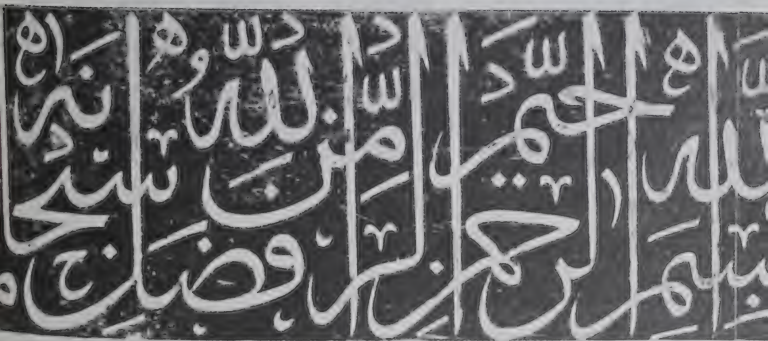 بسم الله الرحمن الرحيم من فضل الله سبحانه